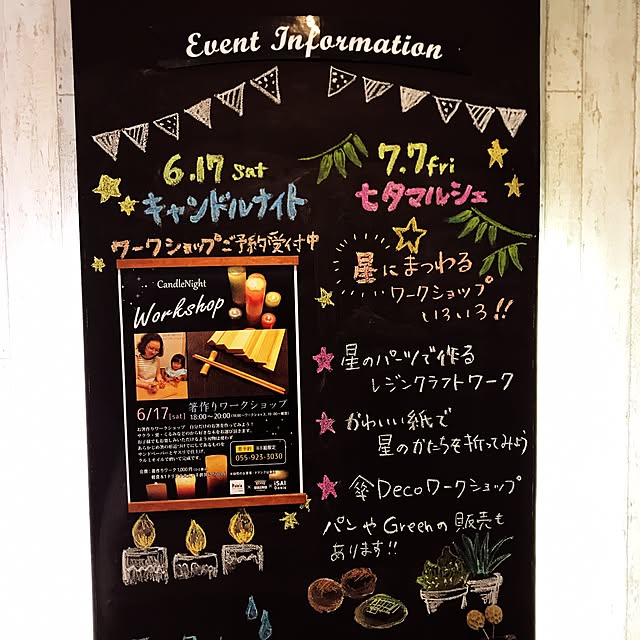 Event Information
6.17 sat
キャンドルナイト
ワークショップご予約受付中
CandleNight
Workshop
6/17[sat]
箸作りワークショップ
18:00〜20:00
お箸作りワークショップ 自分だけのお箸を作ってみよう!
要予約
055-923-3030
7.7 fri
七夕マルシェ
星にまつわる
ワークショップ
いろいろ!!
星のパーツで作る
レジンクラフトワーク
かわいい紙で
星のかたちを折ってみよう
傘Decoワークショップ
パンやGreenの販売も
あります!!